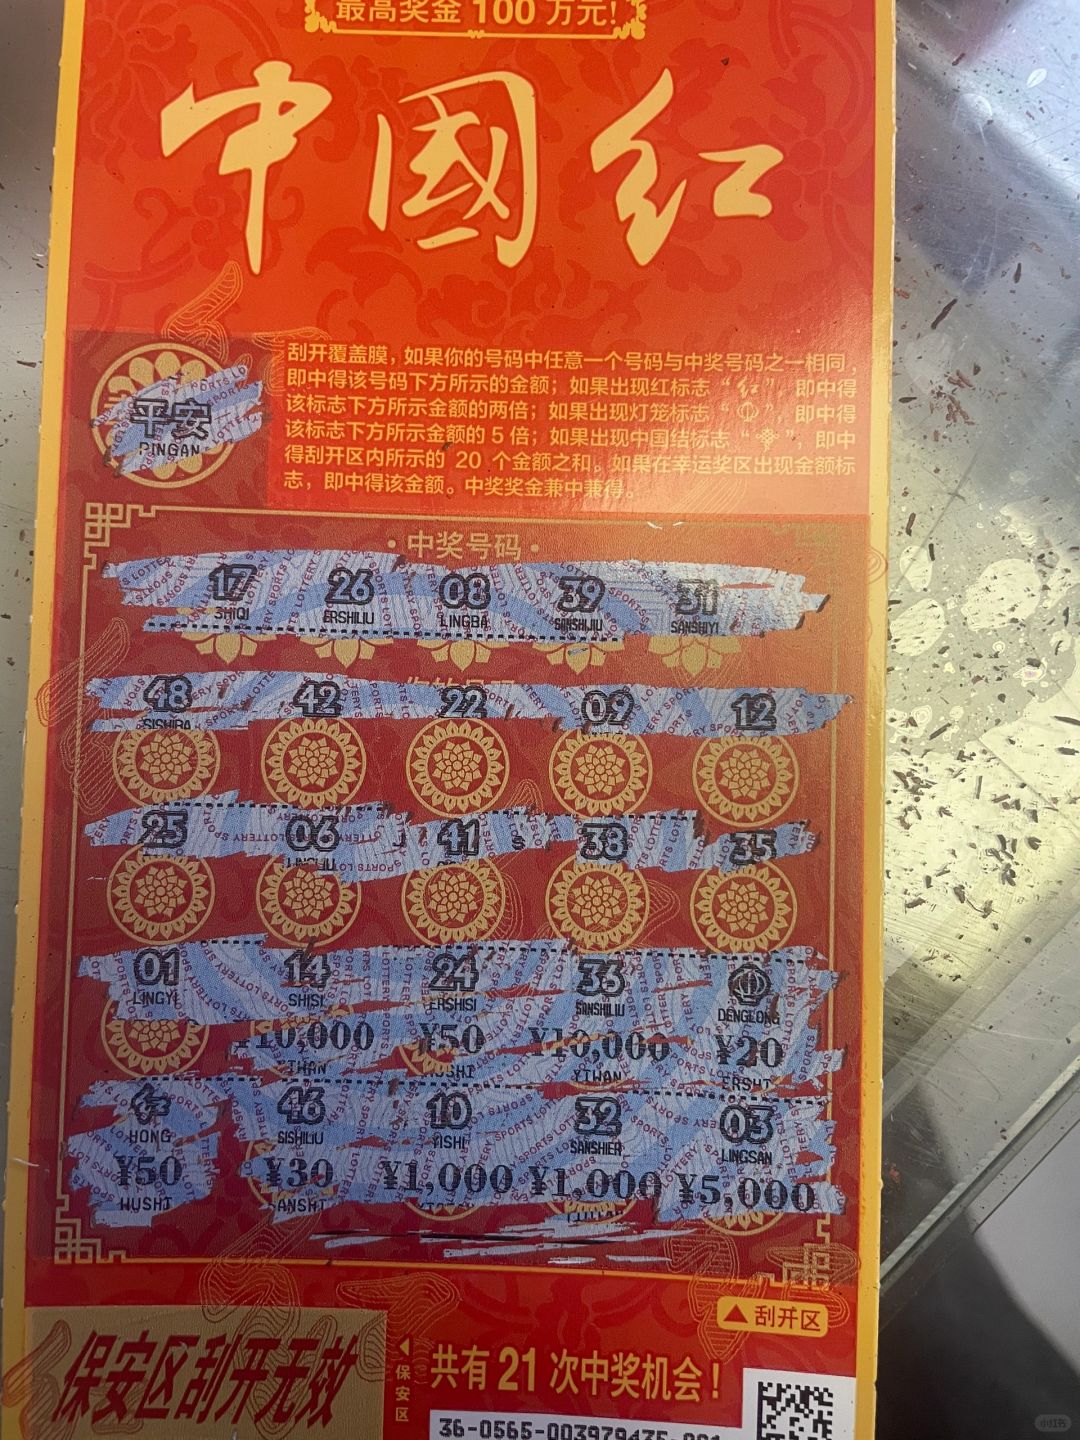 最高奖金 100 万元!
中國红
刮开覆盖膜，如果你的号码中任意一个号码与中奖号码之一相同，
即中得该号码下方所示的金额；如果出现红标志“红”，即中得
该标志下方所示金额的两倍；如果出现灯笼标志“ ”，即中得
该标志下方所示金额的 5 倍；如果出现中国结标志“ ”，即中
得刮开区内所示的 20 个金额之和。如果在幸运奖区出现金额标
志，即中得该金额。中奖奖金兼中兼得。
平安
PINGAN
·中奖号码·
17 26 08 39 31
SHIQI ERSHILIU LINGBA SANSHIJIU SANSHIYI
48 42 22 09 12
SISHIBA
25 06 41 38 35
LINGLIU
01 14 24 36
LINGYI SHISI ERSHISI SANSHILIU DENGLONG
¥10,000 ¥50 ¥10,000 ¥20
YIWAN WUSHI YIWAN ERSHI
红 46 10 32 03
HONG SISHILIU YISHI SANSHIER LINGSAN
¥50 ¥30 ¥1,000 ¥1,000 ¥5,000
WUSHI SANSHI
▲刮开区
保安区刮开无效
◀保安区
共有 21 次中奖机会！
36-0565-003979435-001
小红书